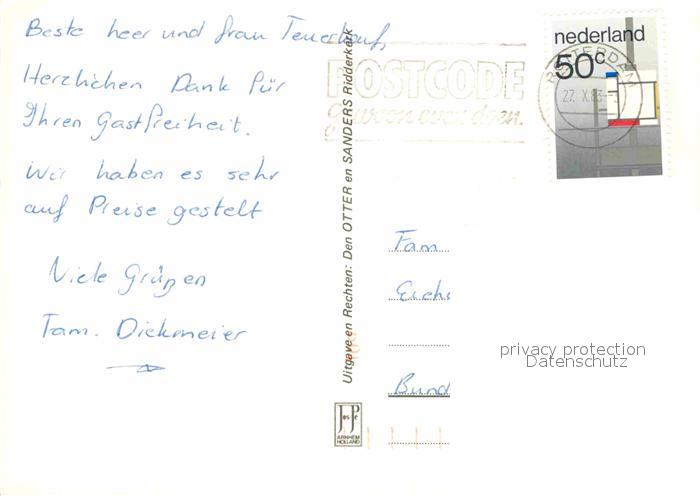 Beste heer und frau Teuerkauf,
Herzlichen Dank für
Ihren Gastfreiheit.
Wir haben es sehr
auf Preise gestelt
Viele Grüßen
Fam. Diekmeier
Uitgave en Rechten: Den OTTER en SANDERS Ridderkerk
POSTCODE
Gewoon even doen.
nederland
50c
ROTTERDAM
27. X.83
Fam
Eichs
Bund
privacy protection
Datenschutz
JosPé
ARNHEM
HOLLAND